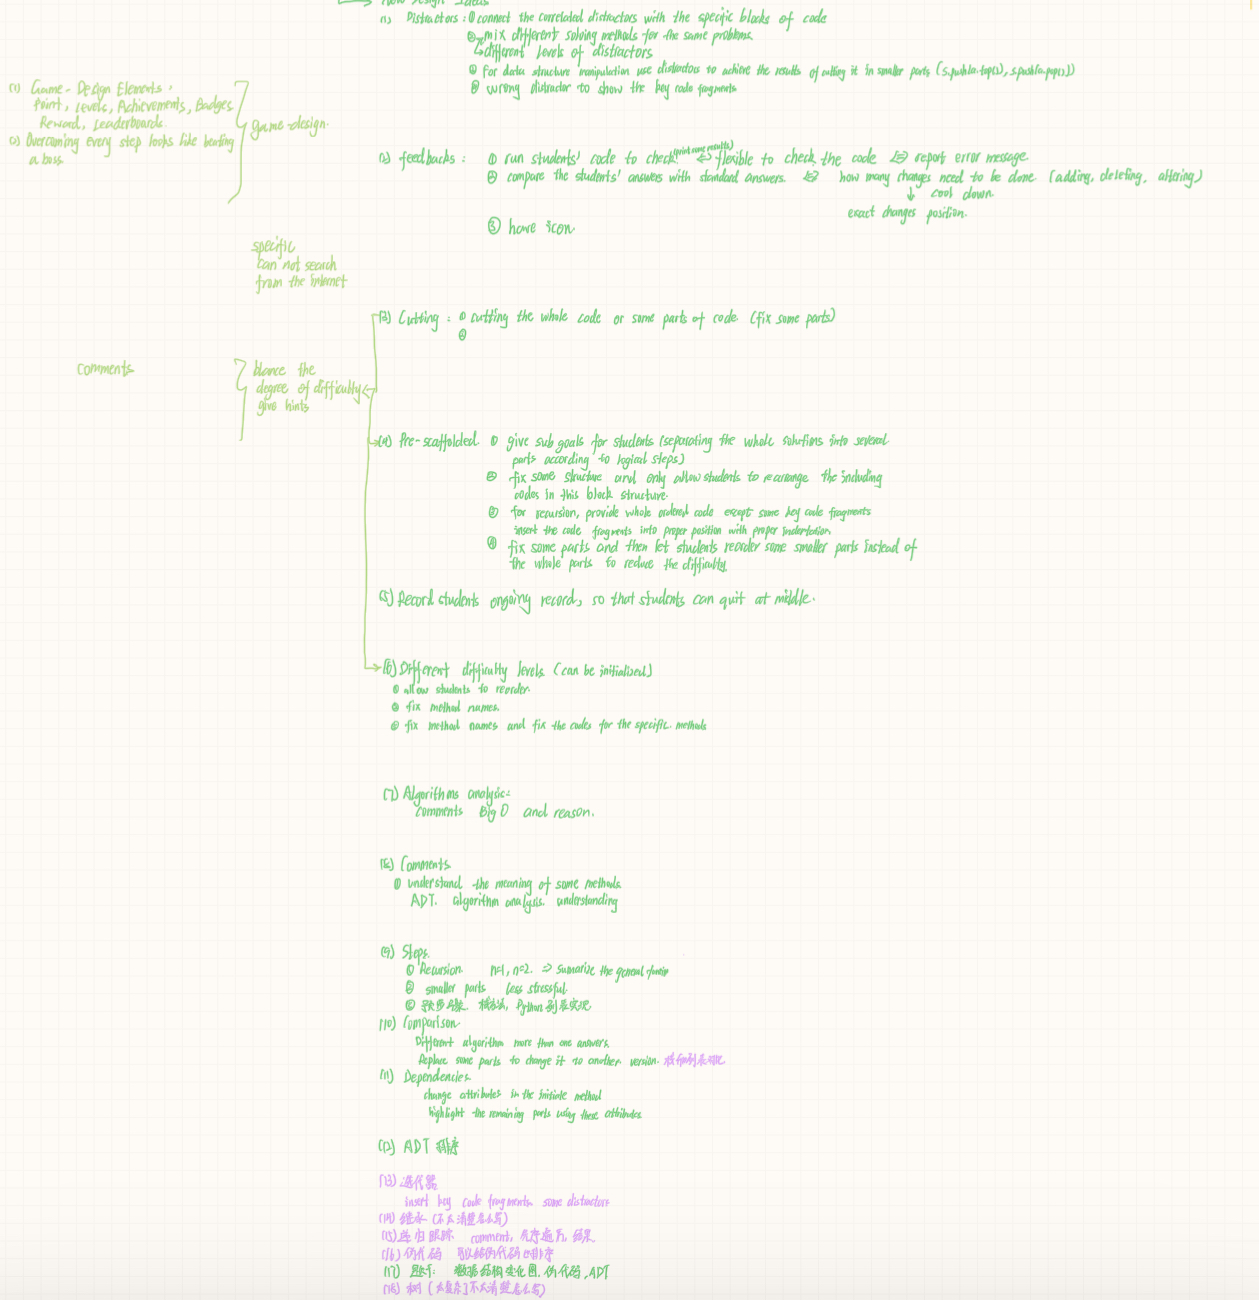 New Design Ideas
(1) Distractors: ① connect the correlated distractors with the specific blocks of code
② mix different solving methods for the same problems.
different levels of distractors
③ for data structure manipulation use distractors to achieve the results of cutting it in smaller parts (s.push(a.top()), s.push(a.pop()))
④ wrong distractor to show the key code fragments
(1) Game-Design Elements:
Point, Levels, Achievements, Badges
Reward, Leaderboards.
(2) Overcoming every step looks like beating
a boss
game-design.
(2) feedbacks: ① run students' code to check (print some results) ⇔ flexible to check the code ⇔ report error message.
② compare the students' answers with standard answers. ⇔ how many changes need to be done (adding, deleting, altering)
↓ cool down
exact changes position.
③ have icon
specific
can not search
from the internet
(3) Cutting: ① cutting the whole code or some parts of code. (fix some parts)
②
comments
blance the
degree of difficulty
give hints
(4) Pre-scaffolded ① give sub goals for students (separating the whole solutions into several
parts according to logical steps)
② fix some structure and only allow students to rearrange the including
codes in this block structure.
③ for recursion, provide whole ordered code except some key code fragments
insert the code fragments into proper position with proper indentation
④ fix some parts and then let students reorder some smaller parts instead of
the whole parts to reduce the difficulty
(5) Record students ongoing record, so that students can quit at middle.
(6) Different difficulty levels. (can be initialized)
① allow students to reorder.
② fix method names.
③ fix method names and fix the codes for the specific methods
(7) Algorithms analysis:
comments Big O and reason.
(8) Comments.
① understand the meaning of some methods.
ADT. algorithm analysis. understanding
(9) Steps.
① Recursion. n=1, n=2. ⇒ sumarize the general
② smaller parts less stressful.
③ Python 列表实现
(10) Comparison
Different algorithm more than one answers.
Replace some parts to change it to another version.
(11) Dependencies.
change attributes in the initiate method
highlight the remaining parts using these attributes.
(12) ADT 排序
(13) 迭代器
insert key code fragments. some distractors
(14) 继承 (不太清楚怎么写)
(15) 递归跟踪 comment, 先序遍历, 结果.
(16) 伪代码 可以给伪代码 排序
(17) 提示: 数据结构变化图, 伪代码, ADT
(18) 树 (太复杂了不太清楚怎么写)